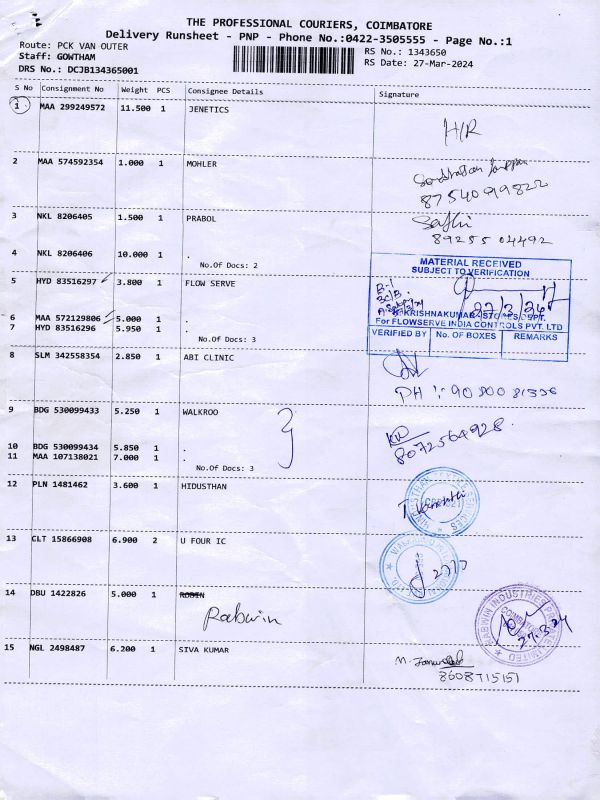 THE PROFESSIONAL COURIERS, COIMBATORE
Delivery Runsheet - PNP - Phone No.:0422-3505555 - Page No.:1
Route: PCK VAN OUTER
RS No.: 1343650
Staff: GOWTHAM
RS Date: 27-Mar-2024
DRS No.: DCJB134365001
S No Consignment No Weight PCS Consignee Details Signature
1 MAA 299249572 11.500 1 JENETICS
H/R
2 MAA 574592354 1.000 1 MOHLER
8754099822
3 NKL 8206405 1.500 1 PRABOL
89255 04492
4 NKL 8206406 10.000 1 .
No.Of Docs: 2
MATERIAL RECEIVED
SUBJECT TO VERIFICATION
5 HYD 83516297 3.800 1 FLOW SERVE
27/3/24
S. KRISHNAKUMAR - STORES DEPT.
For FLOWSERVE INDIA CONTROLS PVT. LTD
VERIFIED BY No. OF BOXES REMARKS
6 MAA 572129806 5.000 1 .
7 HYD 83516296 5.950 1 .
No.Of Docs: 3
8 SLM 342558354 2.850 1 ABI CLINIC
PH
9 BDG 530099433 5.250 1 WALKROO
8072564928
10 BDG 530099434 5.850 1 .
11 MAA 107138021 7.000 1 .
No.Of Docs: 3
12 PLN 1481462 3.600 1 HIDUSTHAN
13 CLT 15866908 6.900 2 U FOUR IC
14 DBU 1422826 5.000 1 ROBIN
Rabwin
RABWIN INDUSTRIES
COIMBATORE
LIMITED
27.3.24
15 NGL 2498487 6.200 1 SIVA KUMAR
8608715151